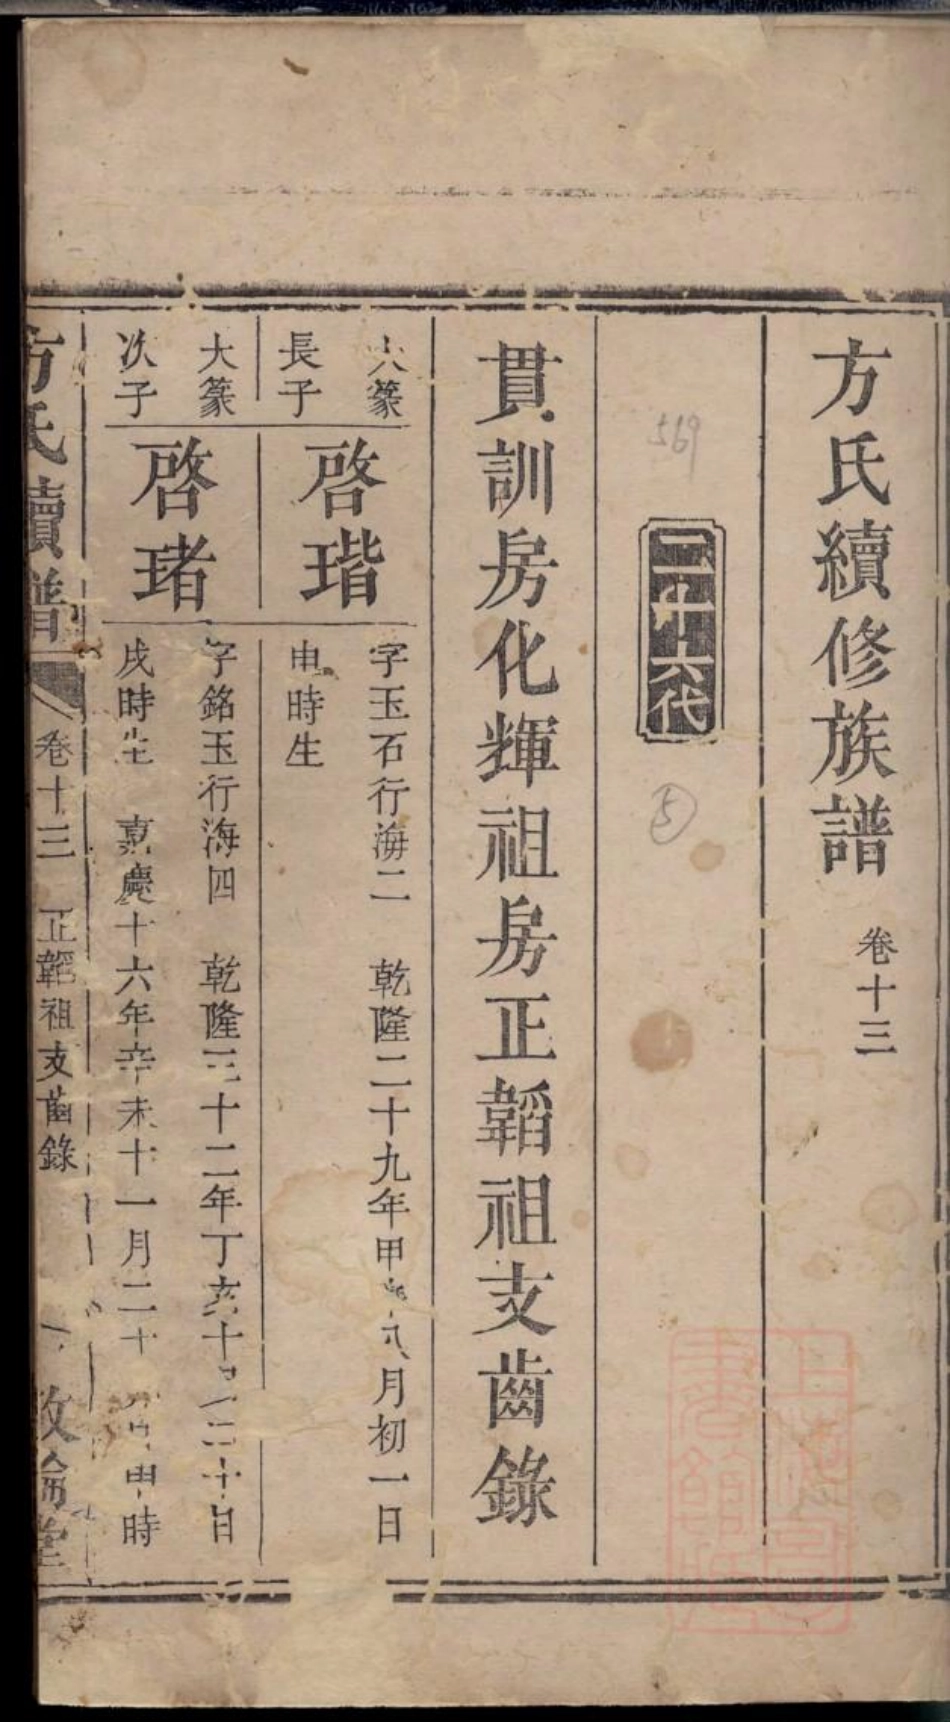 方氏續修族譜 卷十三
569
二十六代
5
貫訓房化輝祖房正韜祖支齒錄
大篆
長子
啓瑎
字玉石行海二 乾隆二十九年甲 八月初一日
申時生
大篆
次子
啓琽
字銘玉行海四 乾隆三十二年丁亥十 二十日
戌時生 嘉慶十六年辛未十一月二十 申時
方氏續譜 卷十三 正韜祖支齒錄 一 敦倫堂